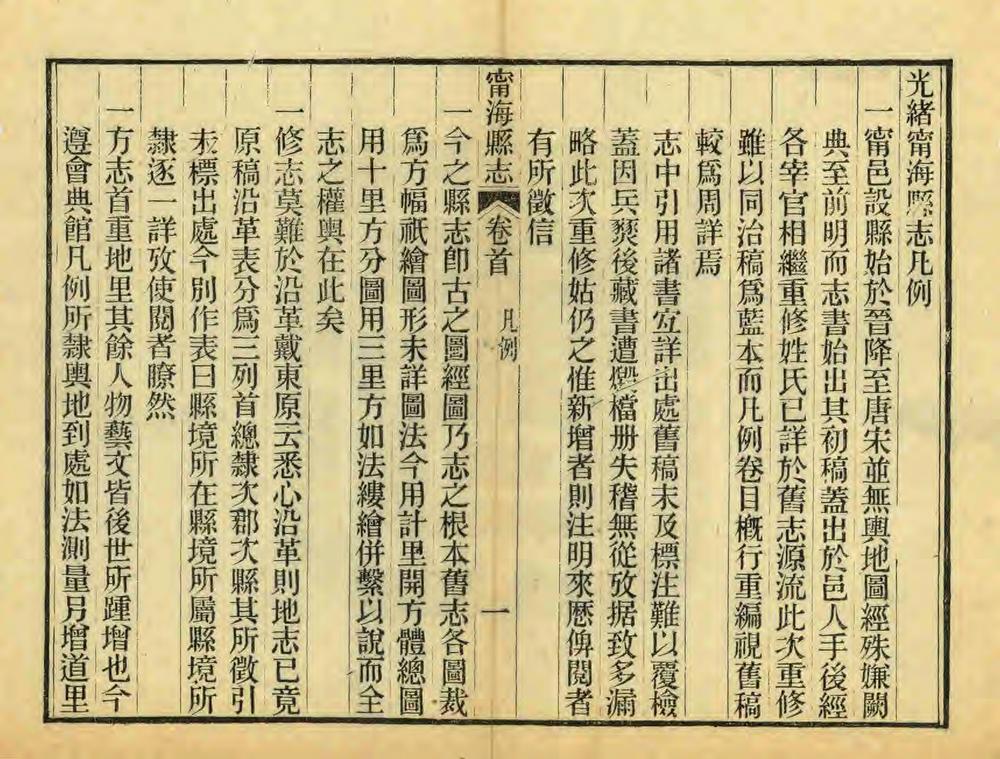 光緒甯海縣志凡例
一甯邑設縣始於晉降至唐宋並無輿地圖經殊嫌闕
典至前明而志書始出其初稿蓋出於邑人手後經
各宰官相繼重修姓氏已詳於舊志源流此次重修
雖以同治稿爲藍本而凡例卷目槪行重編視舊稿
較爲周詳焉
志中引用諸書宐詳出處舊稿未及標注難以覆檢
蓋因兵燹後藏書遭燬檔册失稽無從攷据致多漏
略此次重修姑仍之惟新增者則注明來厯俾閱者
有所徵信
甯海縣志
卷首
凡例
一
一今之縣志卽古之圖經圖乃志之根本舊志各圖裁
爲方幅祇繪圖形未詳圖法今用計里開方體總圖
用十里方分圖用三里方如法縷繪併繫以說而全
志之權輿在此矣
一修志莫難於沿革戴東原云悉心沿革則地志已竟
原稿沿革表分爲三列首總隸次郡次縣其所徵引
未標出處今別作表曰縣境所在縣境所屬縣境所
隸逐一詳攷使閱者瞭然
一方志首重地里其餘人物藝文皆後世所踵增也今
遵會典館凡例所隸輿地到處如法測量另增道里